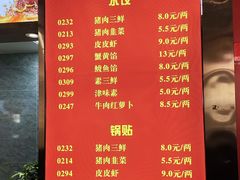 水饺
0232 猪肉三鲜 8.0元/两
0213 猪肉韭菜 5.5元/两
0293 皮皮虾 9.0元/两
0297 蟹黄馅 13元/两
0296 鲅鱼馅 8.0元/两
0309 素三鲜 5.5元/两
0299 津味素 5.0元/两
0247 牛肉红萝卜 8.5元/两
锅贴
0232 猪肉三鲜 8.0元/两
0214 猪肉韭菜 5.5元/两
0294 皮皮虾 9.0元/两